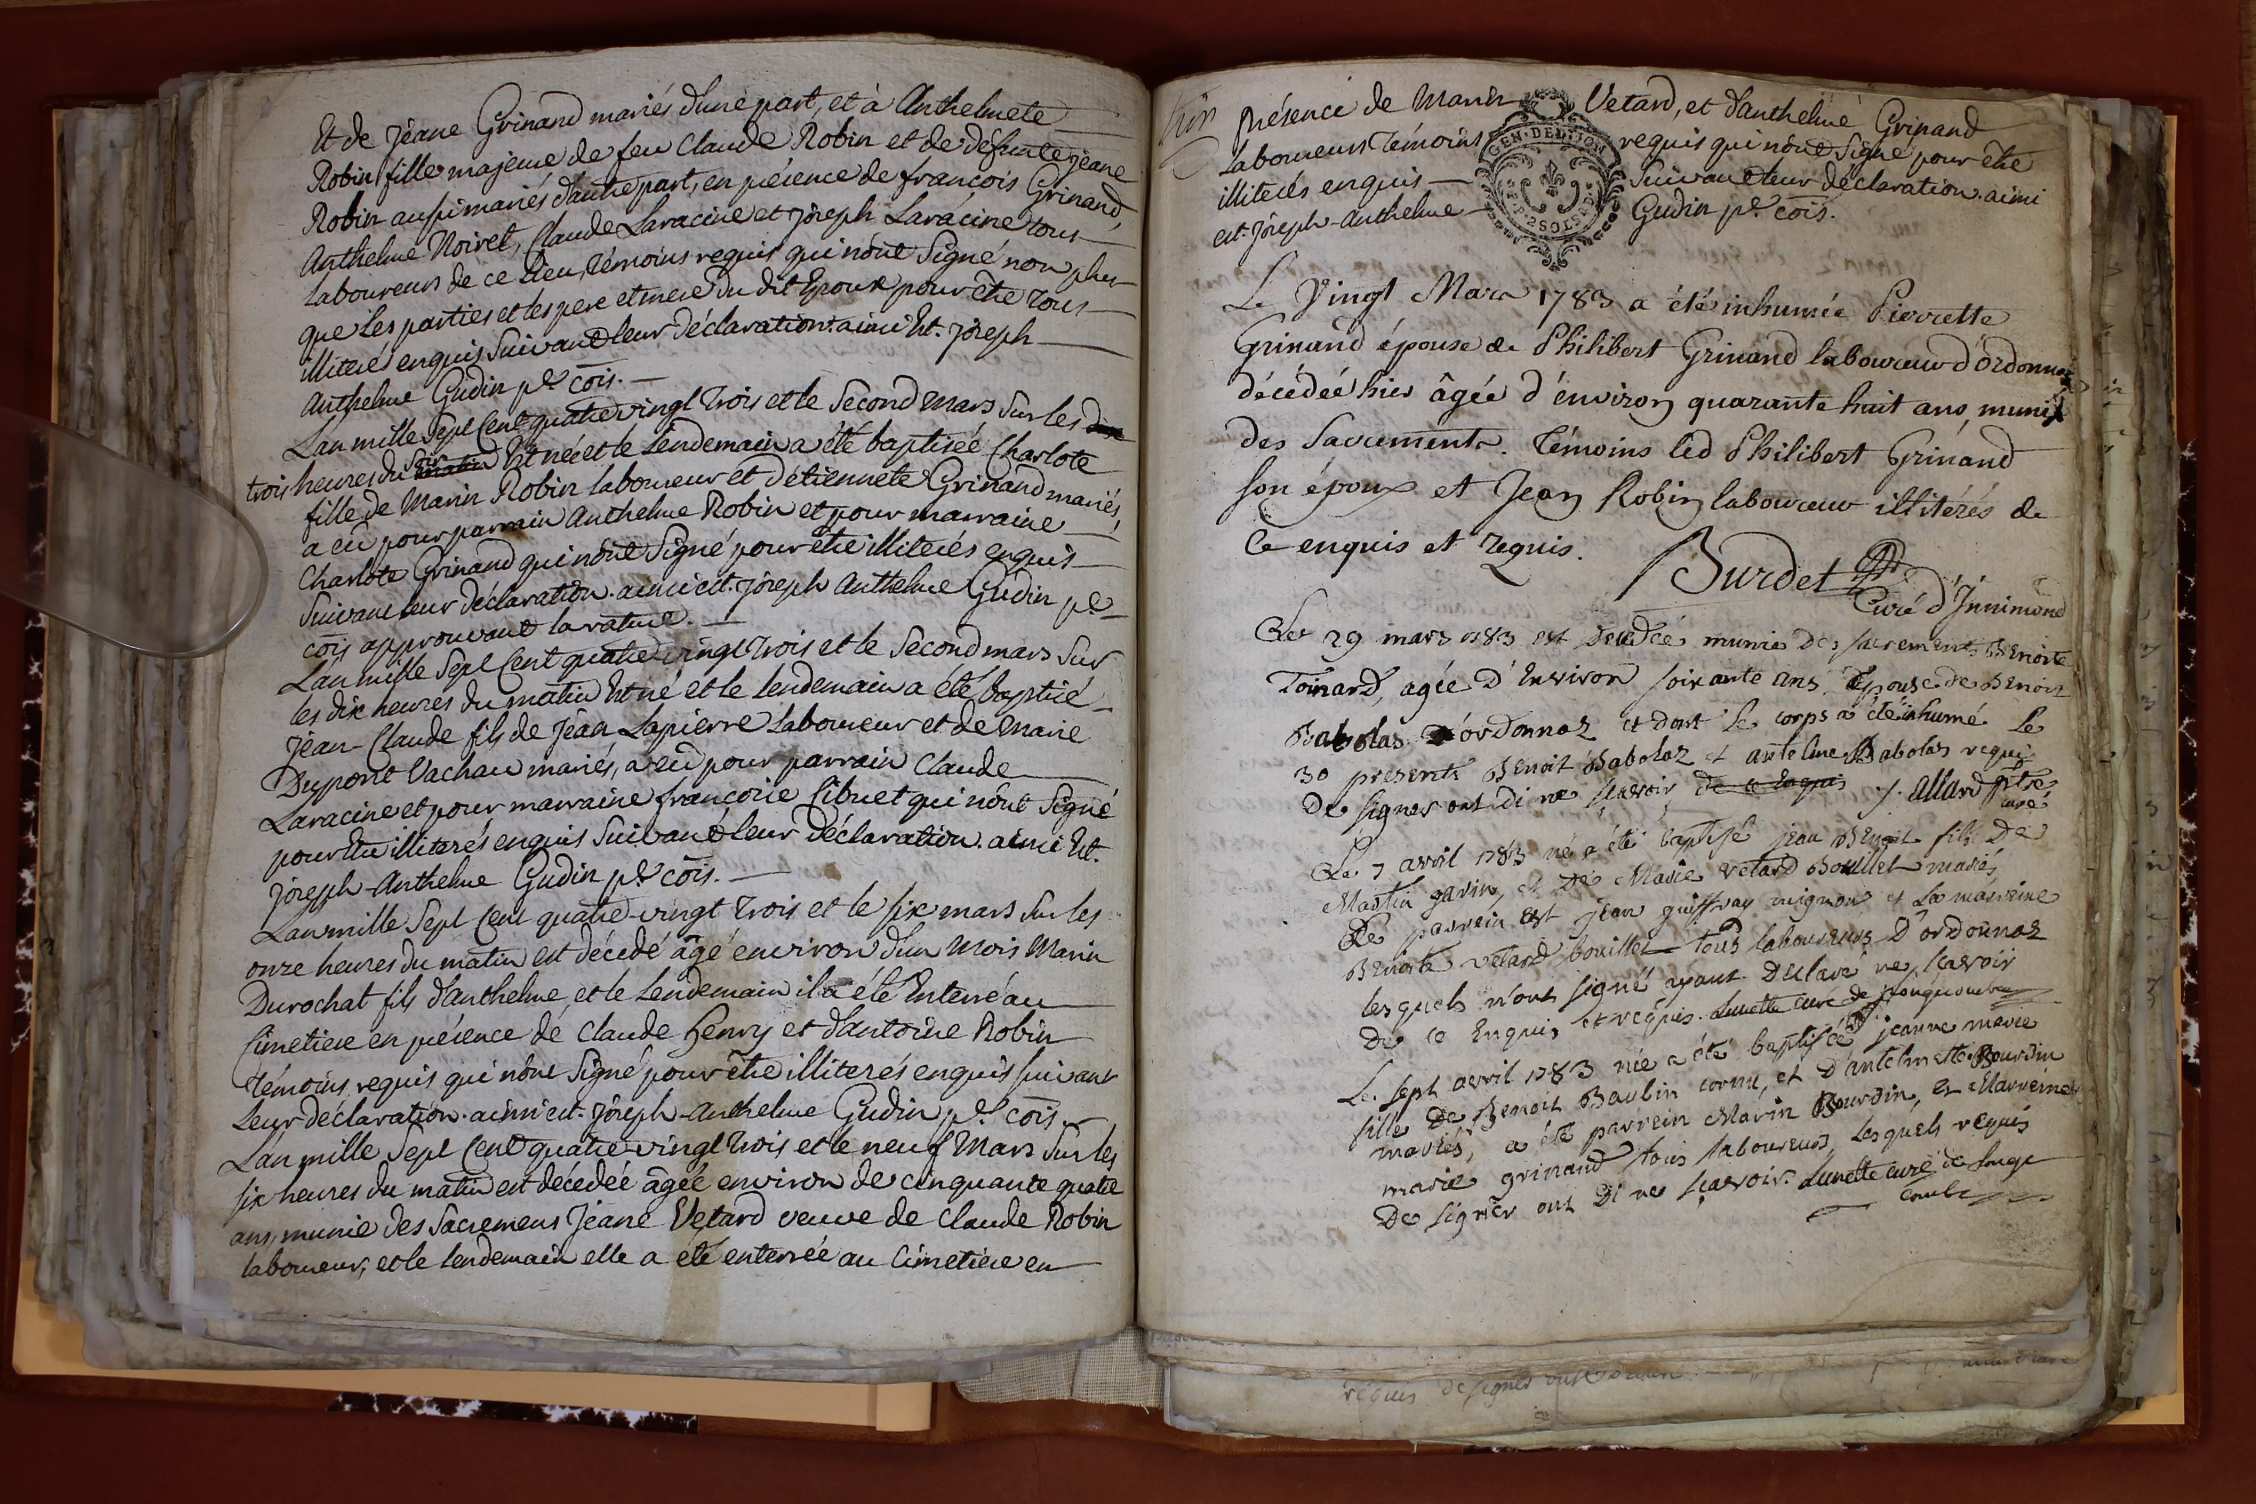 Et de Jéane Grinand mariés d'une part, et à Anthelmete
Robin fille majeure de feu Claude Robin et de défunte jéane
Robin aussi mariés d'autre part, en présence de françois Grinand,
Anthelme Noiret, Claude Laracine et joseph Laracine tous
laboureurs de ce lieu, témoins requis qui n'ont Signé non plus
que les parties et les pere et mere du dit Epoux pour être tous
illiterés enquis Suivant leur déclaration. ainsi Est. joseph
Anthelme Gudin p.e cois.
L'an mille Sept Cent quatre vingt trois et le Second mars Sur les dix
trois heures du matin soir Est née et le lendemain a été baptisée Charlote
fille de Marin Robin laboureur et d'étiennete Grinand mariés,
a eû pour parrain Anthelme Robin et pour marraine
Charlote Grinand qui n'ont Signé pour être illiterés enquis
Suivant leur déclaration. ainsi est. joseph Anthelme Gudin p.e
cois approuvant la rature.
L'an mille Sept Cent quatre vingt trois et le Second mars Sur
les dix heures du matin Est né et le lendemain a été baptisé
Jean-Claude fils de Jéan Lapierre laboureur et de Marie
Dupont Vachau mariés, a eû pour parrain Claude
Laracine et pour marraine françoise Cibuet qui n'ont Signé
pour Etre illiterés enquis Suivant leur déclaration. ainsi Est.
joseph-Anthelme Gudin p.e cois.
L'an mille Sept Cent quatre-vingt trois et le six mars Sur les
onze heures du matin est décedé âgé environ d'un mois Marin
Durochat fils d'anthelme, et le lendemain il a été Enterré au
Cimetiere en présence de Claude Henry et d'antoine Robin
témoins requis qui n'ont Signé pour être illiterés enquis suivant
leur déclaration. ainsi est. joseph-Anthelme Gudin p.e cois.
L'an mille Sept Cent quatre vingt trois et le neuf Mars Sur les
six heures du matin est décedée âgée environ de cinquante quatre
ans, munie des Sacremens Jéane Vetard veuve de Claude Robin
laboureur, et le lendemain elle a été enterrée au Cimetiere en
présence de Marin Vetard, et d'anthelme Grinand
laboureurs témoins requis qui n'ont Signé pour être
illiterés enquis Suivant leur déclaration. ainsi
est. joseph-Anthelme Gudin p.e cois.
GEN. DE DIJON
2 SOLS
Le Vingt Mars 1783 a été inhumée Pierrette
Grinand épouse de Philibert Grinand laboureur d'Ordonnaz
décédée hier âgée d'environ quarante huit ans munie
des Sacrements. Témoins led Philibert Grinand
son époux et Jean Robin laboureur illitérés de
Ce enquis et requis.
Burdet
Curé d'Innimond
Le 29 mars 1783 est decedée munie des sacrements Benoite
Toinard, agée d'Environ soixante ans, Epouse de Benoit
Babolas d'ordonnaz et dont le corps a été inhumé le
30 presents Benoit Babolaz et antelme Babolas requis
De signer ont di ne sçavoir de ce Enquis J. allard ptre
curé
Le 7 avril 1783 né a été baptisé jean Benoit fils De
Martin gavin, et De Marie vetard Bouillet mariés,
Le parrein est jean guiffray mignon et La marreine
Benoite vetard bouillet tous laboureurs D'ordonnaz
lesquels n'ont signé ayant Declaré ne sçavoir
De ce Enquis et requis. Lunette curé de Longecombe
Le sept avril 1783 née a été baptisée jeanne marie
fille De Benoit Baubin cornu, et D'antelmette Bourdin
mariés, a été parrein Marin Bourdin, et Marreine
marie grinand tous laboureurs, lesquels requis
De signer ont Di ne sçavoir. Lunette curé de Longe
combe
requis de signer